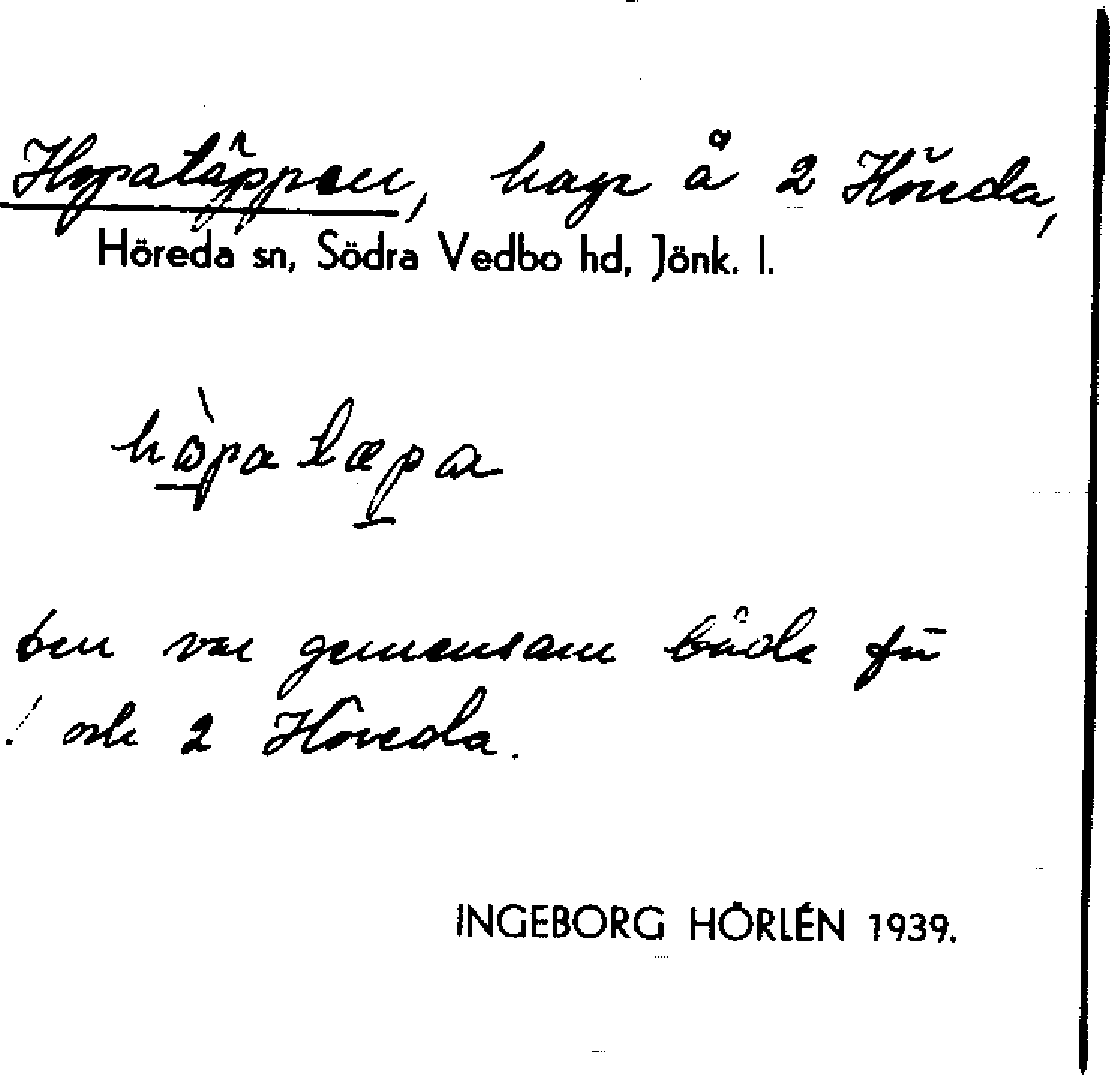 Hopatäppan, hage å 2 Höreda,
Höreda sn, Södra Vedbo hd, Jönk. l.
hòpatæpa
den var gemensam både för
1 och 2 Höreda.
INGEBORG HÖRLÉN 1939.